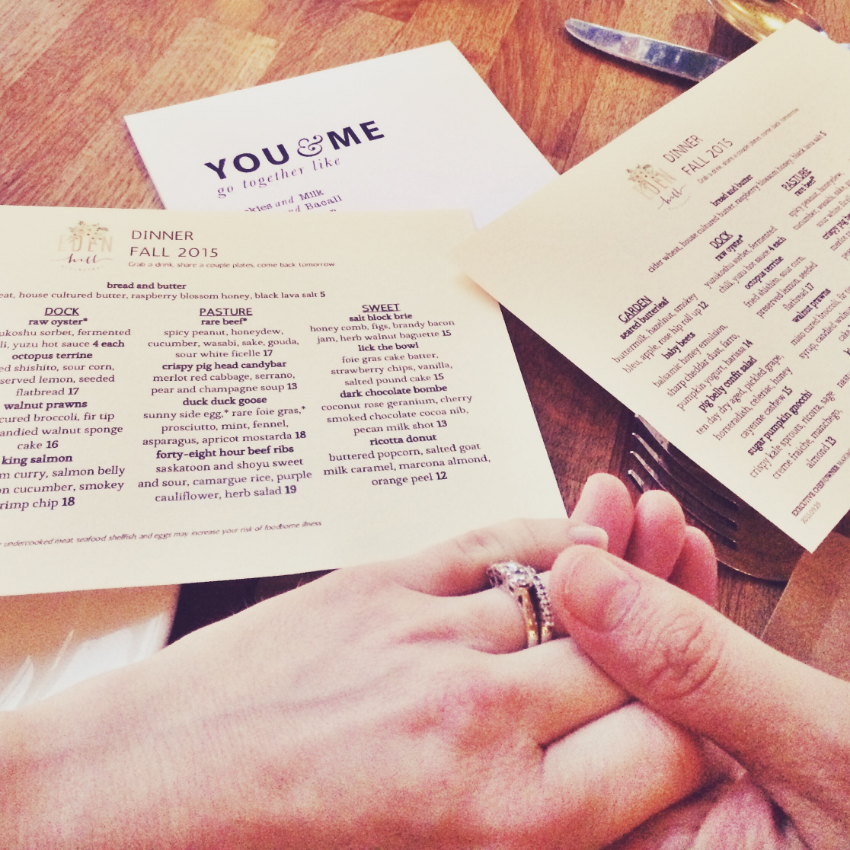 YOU & ME
go together like
and Milk
Bacall
EDEN
hill
DINNER
FALL 2015
Grab a drink, share a couple plates, come back tomorrow
bread and butter
house cultured butter, raspberry blossom honey, black lava salt 5
DOCK
raw oyster*
sorbet, fermented
yuzu hot sauce 4 each
octopus terrine
shishito, sour corn,
lemon, seeded
flatbread 17
walnut prawns
cured broccoli, fir tip
candied walnut sponge
cake 16
king salmon
curry, salmon belly
cucumber, smokey
chip 18
PASTURE
rare beef*
spicy peanut, honeydew,
cucumber, wasabi, sake, gouda,
sour white ficelle 17
crispy pig head candybar
merlot red cabbage, serrano,
pear and champagne soup 13
duck duck goose
sunny side egg,* rare foie gras,*
prosciutto, mint, fennel,
asparagus, apricot mostarda 18
forty-eight hour beef ribs
saskatoon and shoyu sweet
and sour, camargue rice, purple
cauliflower, herb salad 19
SWEET
salt block brie
honey comb, figs, brandy bacon
jam, herb walnut baguette 15
lick the bowl
foie gras cake batter,
strawberry chips, vanilla,
salted pound cake 15
dark chocolate bombe
coconut rose geranium, cherry
smoked chocolate cocoa nib,
pecan milk shot 13
ricotta donut
buttered popcorn, salted goat
milk caramel, marcona almond,
orange peel 12
undercooked meat seafood shellfish and eggs may increase your risk of foodborne illness
EDEN
hill
DINNER
FALL 2015
Grab a drink, share a couple plates, come back tomorrow
bread and butter
cider wheat, house cultured butter, raspberry blossom honey, black lava salt 5
GARDEN
seared butterleaf
buttermilk, hazelnut, smokey
bleu, apple rose hip roll up 12
baby beets
balsamic honey emulsion,
sharp cheddar dust, farro,
pumpkin yogurt, harissa 14
pig belly confit salad
ten day dry aged, pickled grape,
horseradish, celeriac, honey
cayenne cashew 15
sugar pumpkin gnocchi
crispy kale sprouts, ricotta, sage
creme fraiche, manchego,
almond 13
DOCK
raw oyster*
yuzukoshu sorbet, fermented
chili, yuzu hot sauce 4 each
octopus terrine
fried shishito, sour corn,
preserved lemon, seeded
flatbread 17
walnut prawns
cured broccoli,
syrup, candied walnut
PASTURE
rare beef*
spicy peanut, honeydew
cucumber, wasabi,
sour white
crispy pig
merlot red
pear and
duck
sunny